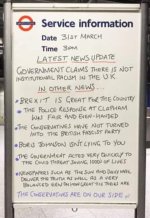 Service information
Date 31ST MARCH
Time 3PM
LATEST NEWS UPDATE
GOVERNMENT CLAIMS THERE IS NOT
INSTITUTIONAL RACISM IN THE U.K.
IN OTHER NEWS...
BREXIT IS GREAT FOR THE COUNTRY
THE POLICE RESPONSE AT CLAPHAM
WAS FAIR AND EVEN-HANDED
THE CONSERVATIVES HAVE NOT TURNED
INTO THE BRITISH FASCIST PARTY
BORIS JOHNSON ISN'T LYING TO YOU
THE GOVERNMENT ACTED VERY QUICKLY TO
THE COVID THREAT SAVING 1000S OF LIVES
NEWSPAPERS SUCH AS THE SUN AND DAILY MAIL
DELIVER THE TRUTH AS WELL AS A VERY
BALANCED VIEW ON HOW GREAT THE TORIES ARE
THE CONSERVATIVES ARE ON OUR SIDE